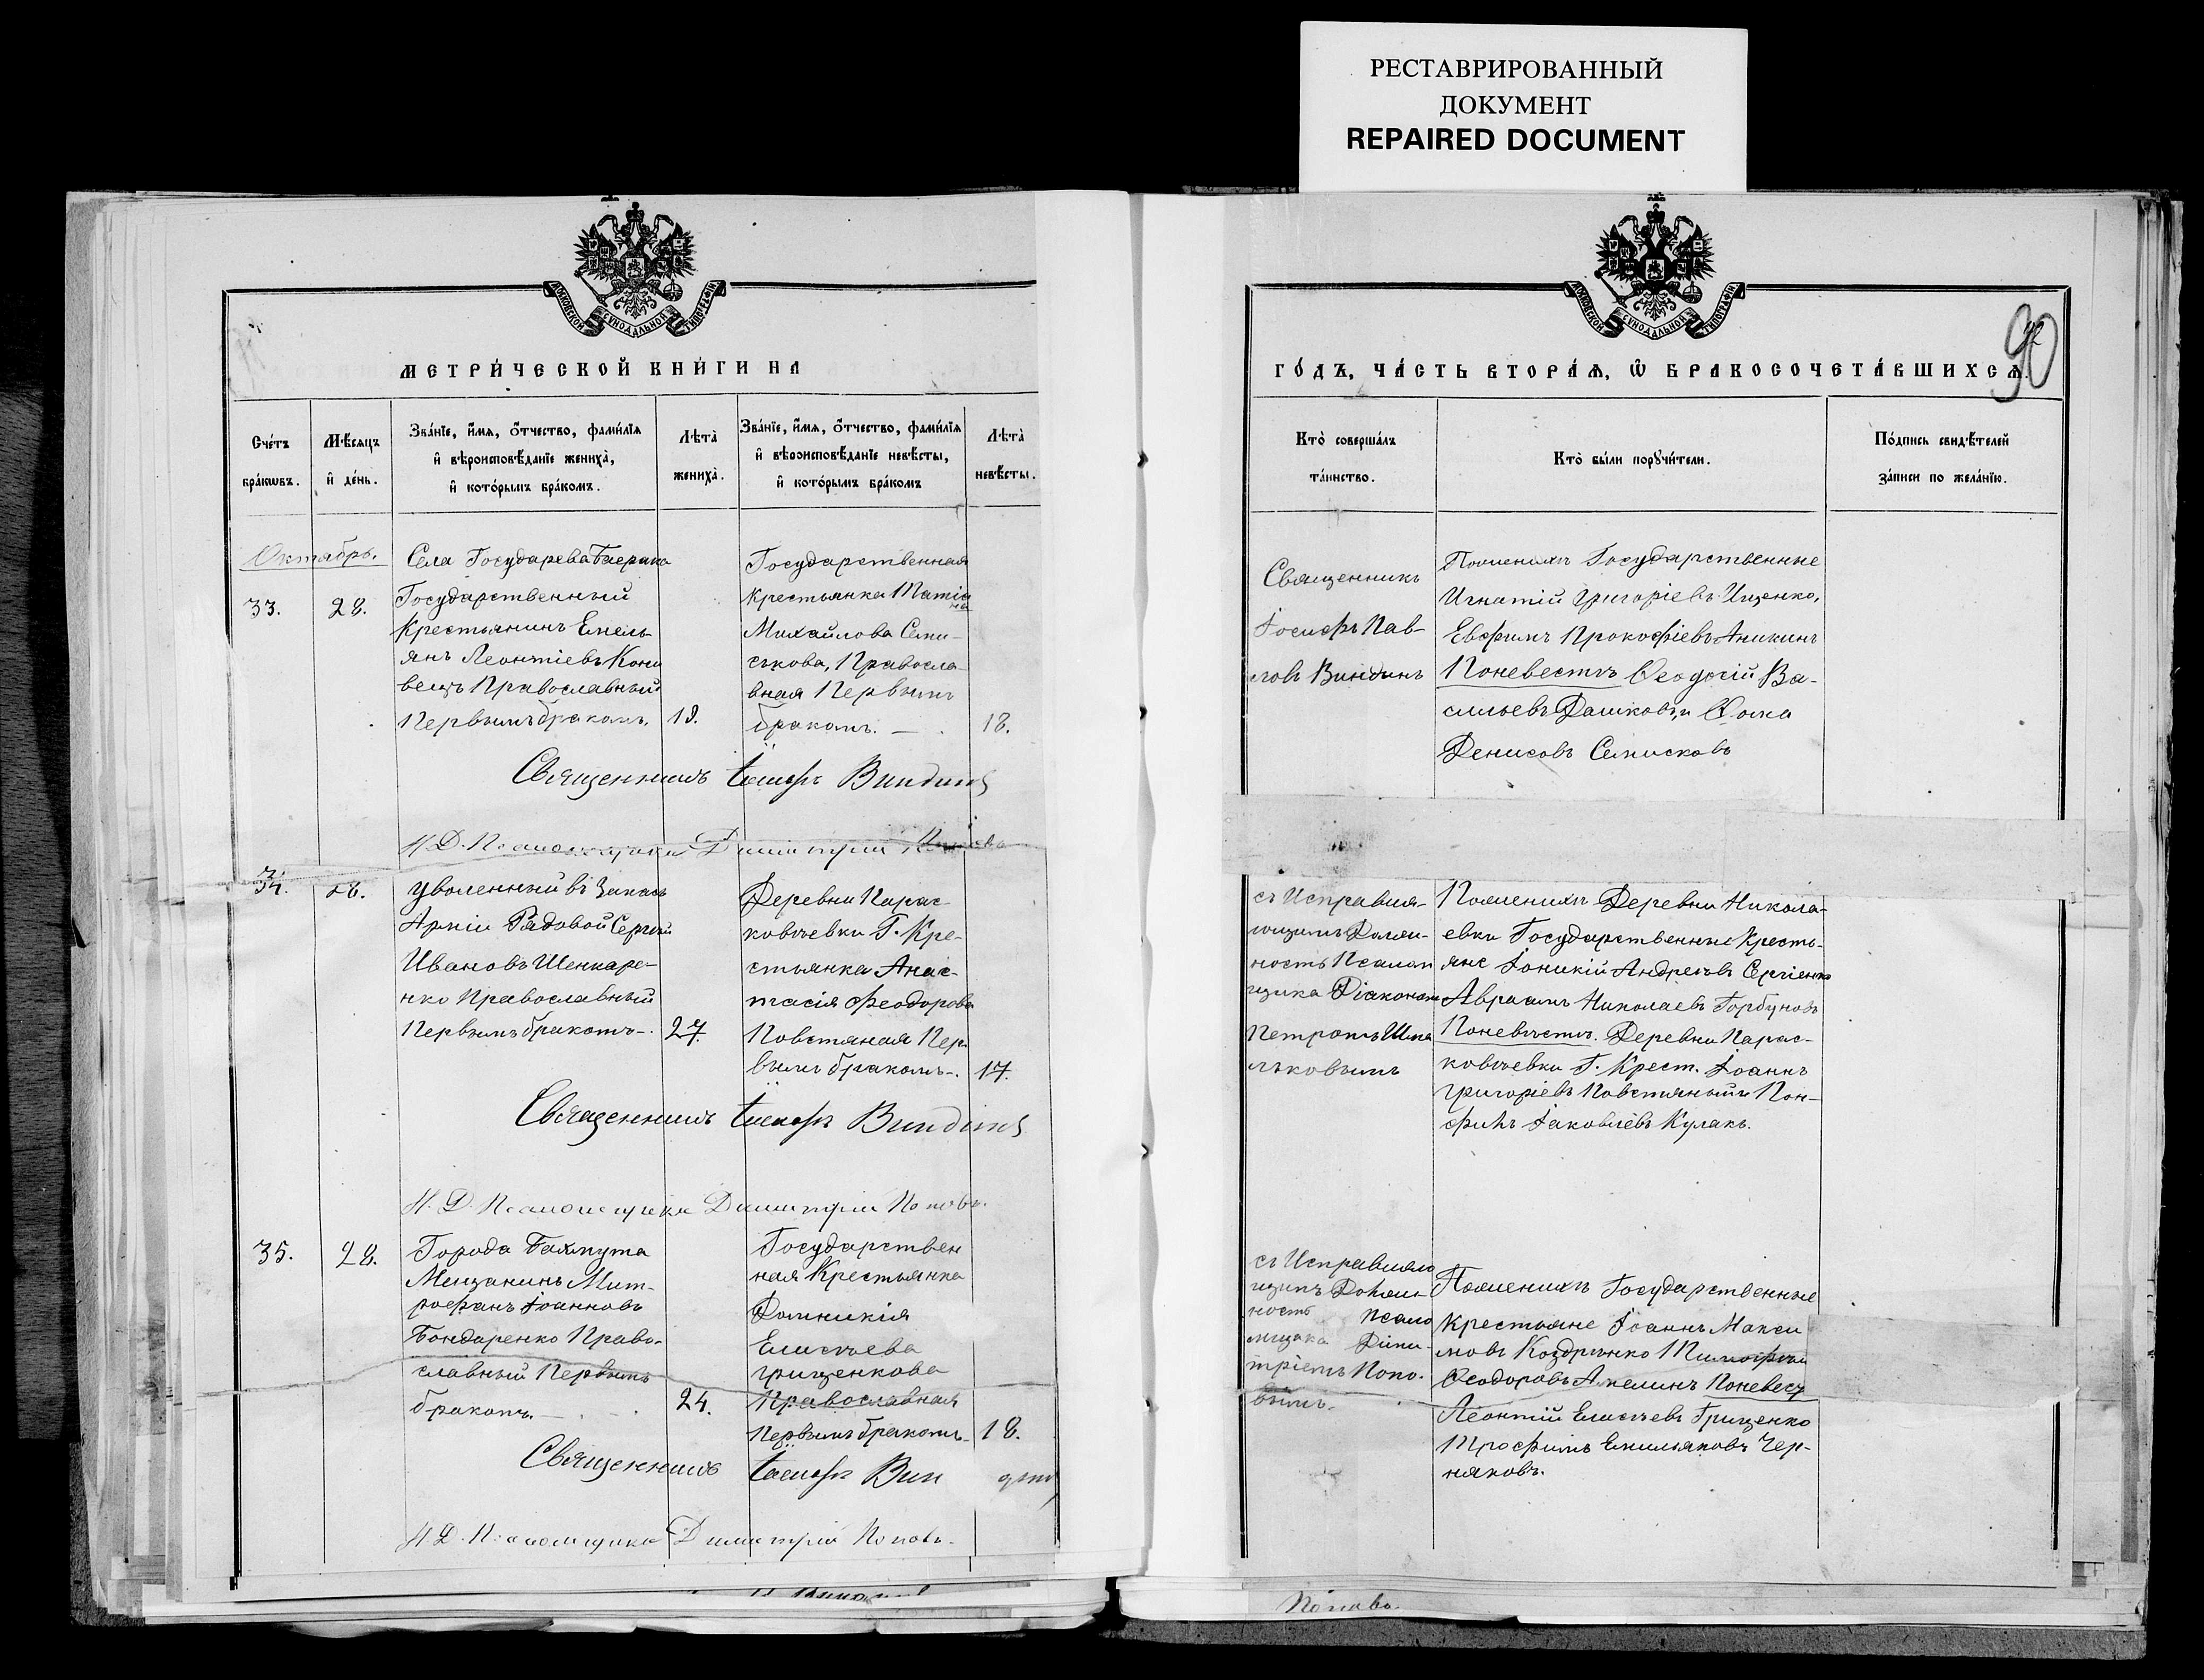 РЕСТАВРИРОВАННЫЙ
ДОКУМЕНТ
REPAIRED DOCUMENT
МОСКОВСКОЙ СѴНОДАЛЬНОЙ ТИПОГРАФІИ
МЕТРИ́ЧЕСКОЙ КНИ́ГИ НА
Сче́тъ
бра́кѡвъ.
Мѣ́сѧцъ
и҆ де́нь.
Зва́нїе, и҆́мѧ, ѻ҆́тчество, фами́лїѧ
и҆ вѣроисповѣ́данїе жениха̀,
и҆ кото́рымъ бра́комъ.
Лѣта̀
жениха̀.
Зва́нїе, и҆́мѧ, ѻ҆́тчество, фами́лїѧ
и҆ вѣроисповѣ́данїе невѣ́сты,
и҆ кото́рымъ бра́комъ
Лѣта̀
невѣ́сты.
Октябрь.
33.
28.
Села Государева Баерака
Государственный
Крестьянинъ Емель-
янъ Леонтіевъ Коно
вецъ Православный
Первымъ бракомъ.
18.
Государственная
Крестьянка Татіа
на
Михайлова Семи-
скова, Правосла-
вная Первымъ
бракомъ.
18.
Священникъ Іосифъ Виндинъ
И.Д. Псаломщика Димитрій Поповъ
34.
28.
Уволенный въ Запасъ
Арміи Рядовой Сергій
Ивановъ Шенкаре-
нко Православный
Первымъ бракомъ-.
27.
Деревни Парас-
ковіевки Г. Кре-
стьянка Анас-
тасія Феодорова
Повстяная Пер
вымъ бракомъ-.
17.
Священникъ Іосифъ Виндинъ
И. Д. Псаломщика Димитрій Поповъ.
35.
28.
Города Бахмута
Мещанинъ Мит-
рофанъ Іоанновъ
Бондаренко Право-
славный Первымъ
бракомъ.
24.
Государствен
ная Крестьянка
Домникія
Елисѣева
Грищенкова
Православная
Первымъ бракомъ-
18.
Священникъ Іосифъ Виндинъ
И.Д. Псаломщика Димитрій Поповъ.
МОСКОВСКОЙ СѴНОДАЛЬНОЙ ТИПОГРАФІИ
90
ГО́ДЪ, ЧА́СТЬ ВТОРА́Ѧ, Ѽ БРАКОСОЧЕТА́ВШИХСѦ.
Кто̀ соверша́лъ
та́инство.
Кто̀ бы́ли порꙋчи́тели.
По́дпись свидѣ́телей
за́писи по жела́нїю.
Священникъ
Іосифъ Пав-
ловъ Виндинъ
Поженихѣ Государственные
Игнатій Григоріевъ Ищенко,
Евфимъ Прокофіевъ Аникинъ
Поневестѣ Ѳеодосій Ва-
сильевъ Дашковъ, и Ѳома
Денисовъ Семисковъ
съ Исправля-
ющимъ Долж-
ность Псалом
щика Діаконом
Петромъ Шма
льковымъ
Поженихѣ Деревни Никола-
евки Государственные Кресть-
яне Іоникій Андреевъ Сергіенко
Авраамъ Николаевъ Горбуновъ
Поневѣстѣ. Деревни Парас-
ковіевки Г. Крест. Іоаннъ
Григоріевъ Повстяной и Пон-
филъ Іаковлевъ Кулакъ.
съ Исправляю
щимъ Долж-
ность Псало
мщика Дими-
тріемъ Попо-
вымъ.
Поженихѣ Государственные
Крестьяне Іоаннъ Макси
мовъ Коздрѣнко Тимофей
Ѳеодоровъ Амелинъ Поневест
Леонтій Елисѣевъ Грищенко
Трофимъ Емильяновъ Чер-
няковъ.
Поповъ.